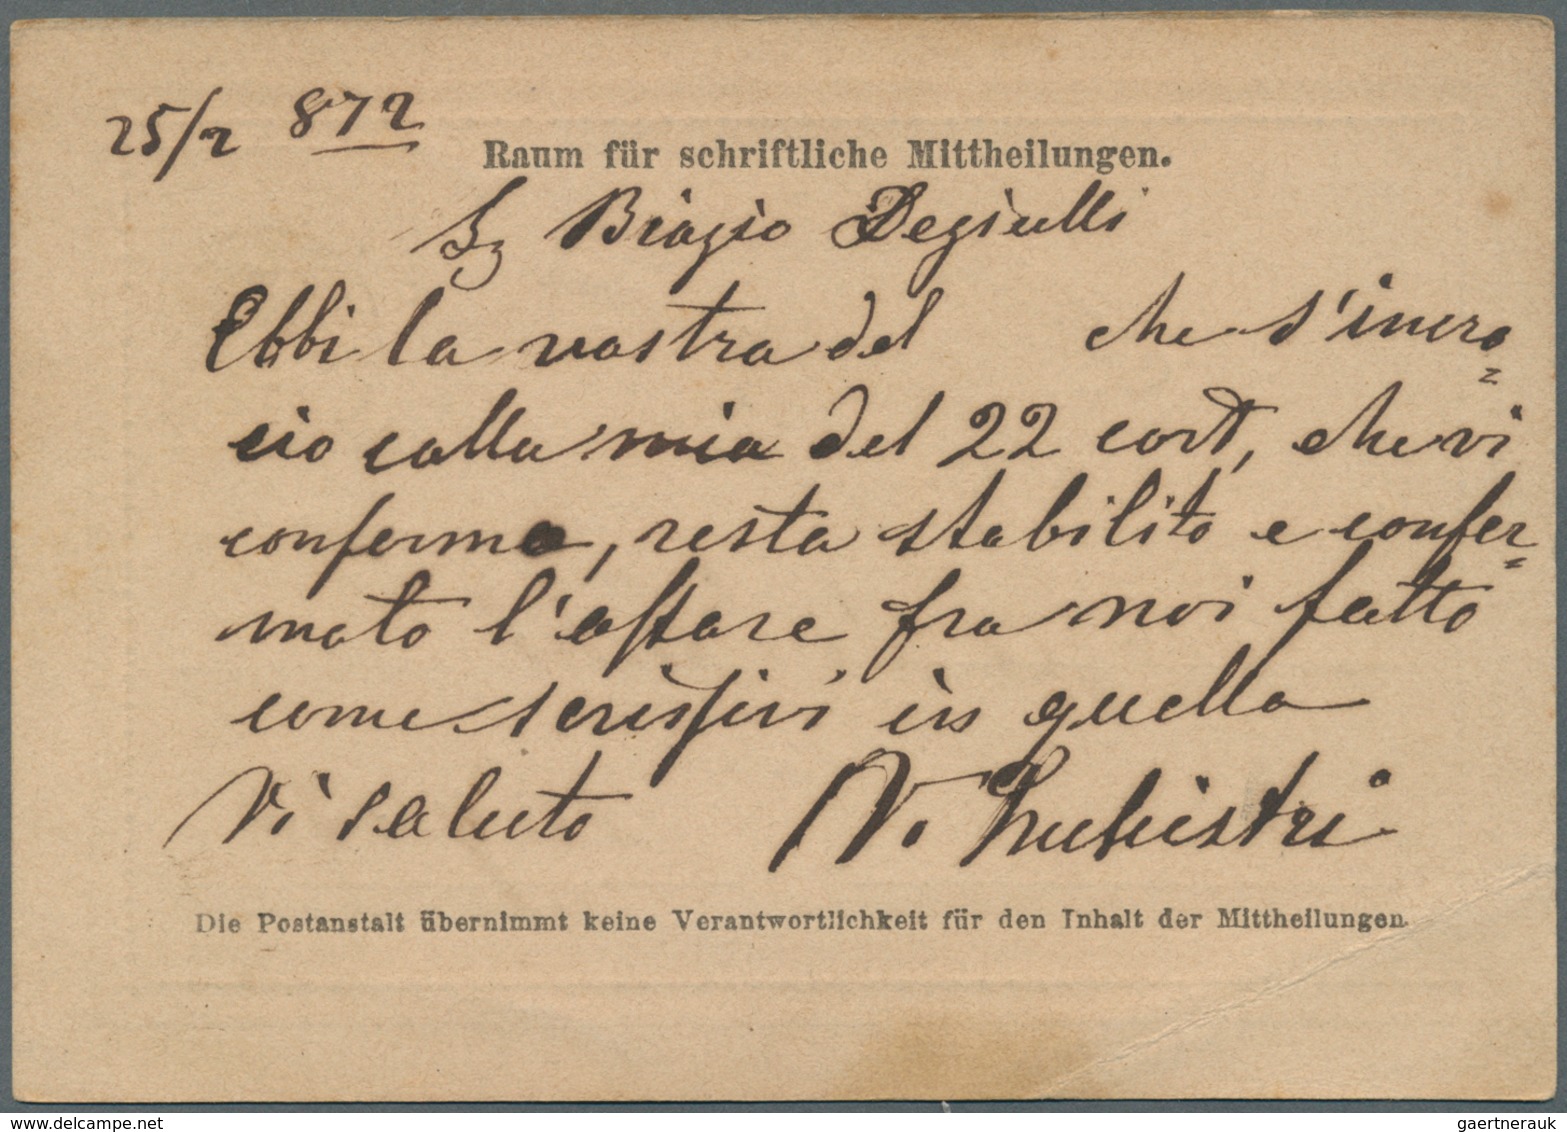 25/2 872
Raum für schriftliche Mittheilungen.
Sg Biagio Degiulli
Ebbi la vostra del che s'incro=
cio colla mia del 22 cort, che vi
confermo, resta stabilito e confer=
mato l'affare fra noi fatto
come scrissivi in quella
Vi saluto N.
Die Postanstalt übernimmt keine Verantwortlichkeit für den Inhalt der Mittheilungen.
delcampe.net
gaertnerauk